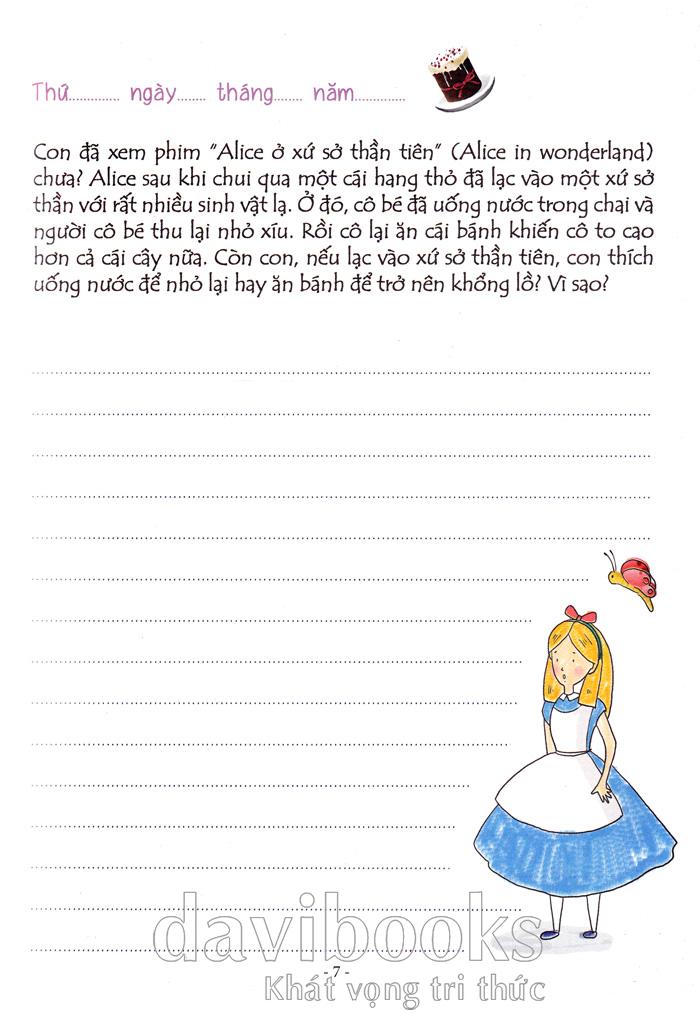 Thứ............. ngày....... tháng....... năm.............
Con đã xem phim "Alice ở xứ sở thần tiên" (Alice in wonderland)
chưa? Alice sau khi chui qua một cái hang thỏ đã lạc vào một xứ sở
thần với rất nhiều sinh vật lạ. Ở đó, cô bé đã uống nước trong chai và
người cô bé thu lại nhỏ xíu. Rồi cô lại ăn cái bánh khiến cô to cao
hơn cả cái cây nữa. Còn con, nếu lạc vào xứ sở thần tiên, con thích
uống nước để nhỏ lại hay ăn bánh để trở nên khổng lồ? Vì sao?
davibooks
- 7 -
Khát vọng tri thức